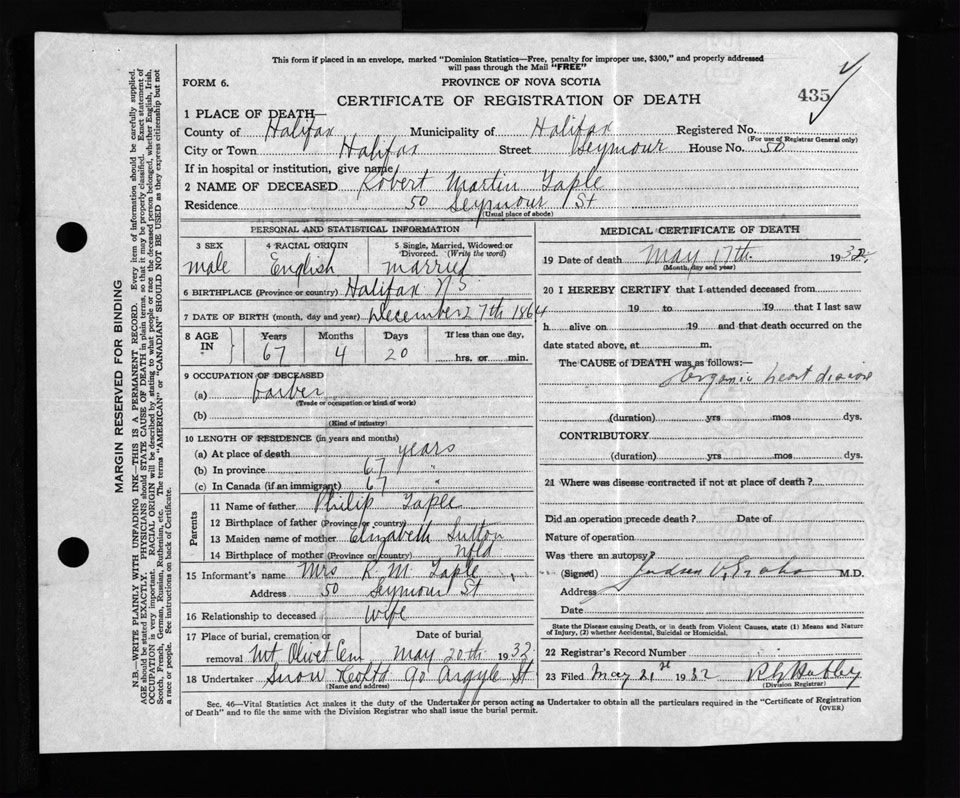 This form if placed in an envelope, marked "Dominion Statistics—Free, penalty for improper use, $300," and properly addressed
will pass through the Mail "FREE"
FORM 6.
PROVINCE OF NOVA SCOTIA
CERTIFICATE OF REGISTRATION OF DEATH
435
1 PLACE OF DEATH—
County of Halifax Municipality of Halifax Registered No.
(For use of Registrar General only)
City or Town Halifax Street Seymour House No. 50
If in hospital or institution, give name
2 NAME OF DECEASED Robert Martin Taple
Residence 50 Seymour St
(Usual place of abode)
PERSONAL AND STATISTICAL INFORMATION
3 SEX
male
4 RACIAL ORIGIN
English
5 Single, Married, Widowed or
Divorced. (Write the word)
married
6 BIRTHPLACE (Province or country) Halifax NS
7 DATE OF BIRTH (month, day and year) December 27th 1864
8 AGE
IN
Years
67
Months
4
Days
20
If less than one day,
hrs. or min.
9 OCCUPATION OF DECEASED
(a) barber
(Trade or occupation or kind of work)
(b)
(Kind of industry)
10 LENGTH OF RESIDENCE (in years and months)
(a) At place of death years
(b) In province 67 "
(c) In Canada (if an immigrant) 67 "
Parents
11 Name of father Philip Taple
12 Birthplace of father (Province or country)
13 Maiden name of mother Elizabeth Sutton
14 Birthplace of mother (Province or country) Nfld
15 Informant's name Mrs R. M. Taple
Address 50 Seymour St
16 Relationship to deceased wife
17 Place of burial, cremation or
removal Mt Olivet Cem
Date of burial
May 20th 1932
18 Undertaker Snow & Co Ltd 90 Argyle St
(Name and address)
MEDICAL CERTIFICATE OF DEATH
19 Date of death May 17th 1932
(Month, day and year)
20 I HEREBY CERTIFY that I attended deceased from
19 to 19 that I last saw
h alive on 19 and that death occurred on the
date stated above, at m.
The CAUSE of DEATH was as follows:—
Organic heart disease
(duration) yrs mos dys.
CONTRIBUTORY
(duration) yrs mos dys.
21 Where was disease contracted if not at place of death?
Did an operation precede death? Date of
Nature of operation
Was there an autopsy?
(Signed) M.D.
Address
Date
State the Disease causing Death, or in death from Violent Causes, state (1) Means and Nature
of Injury, (2) whether Accidental, Suicidal or Homicidal.
22 Registrar's Record Number
23 Filed May 21st 1932
(Division Registrar)
Sec. 46—Vital Statistics Act makes it the duty of the Undertaker or person acting as Undertaker to obtain all the particulars required in the "Certificate of Registration
of Death" and to file the same with the Division Registrar who shall issue the burial permit.
(OVER)
MARGIN RESERVED FOR BINDING
N.B.—WRITE PLAINLY WITH UNFADING INK—THIS IS A PERMANENT RECORD. Every item of information should be carefully supplied.
AGE should be stated EXACTLY. PHYSICIANS should STATE CAUSE OF DEATH in plain terms, so that it may be properly classified. Exact statement of
OCCUPATION is very important. RACIAL ORIGIN will be described by stating to what people or race the deceased person belonged, whether English, Irish,
Scotch, French, German, Russian, Ruthenian, etc. The terms "AMERICAN" or "CANADIAN" SHOULD NOT BE USED as they express citizenship but not
a race or people. See instructions on back of Certificate.